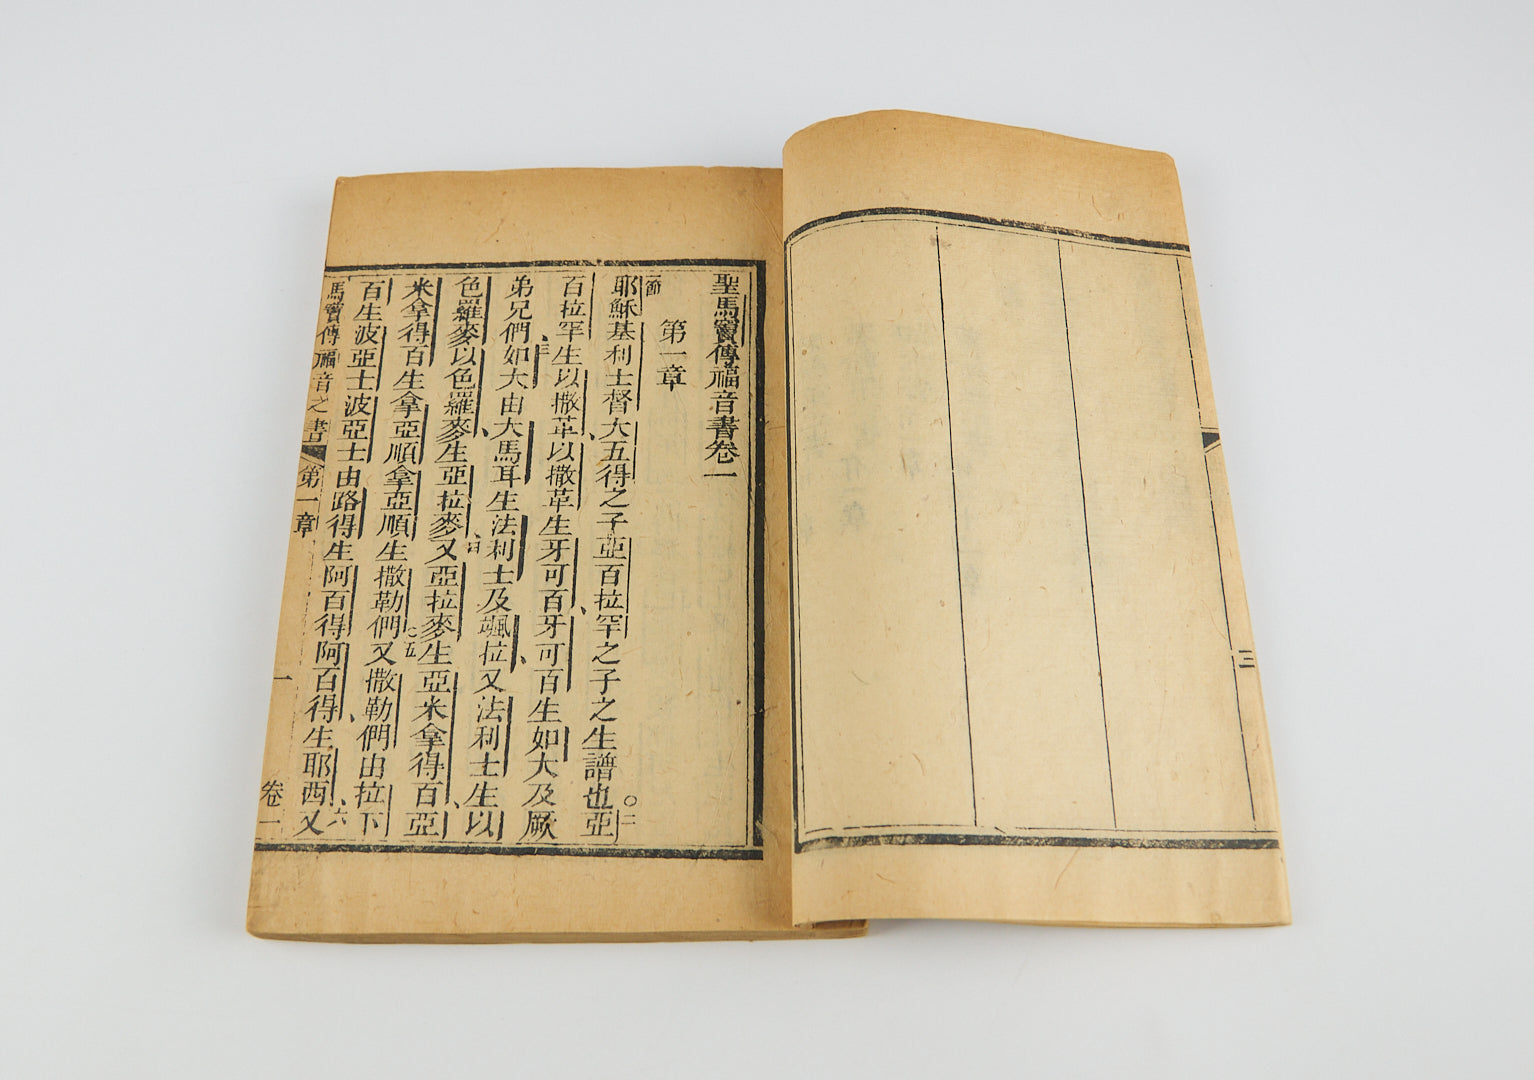 三
聖馬竇傳福音書卷一
第一章
一節
耶穌基利士督大五得之子亞百拉罕之子之生譜也○二亞
百拉罕生以撒革以撒革生牙可百牙可百生如大及厥
弟兄們三如大由大馬耳生法利士及颯拉又法利士生以
色羅麥以色羅麥生亞拉麥四又亞拉麥生亞米拿得百亞
米拿得百生拿亞順拿亞順生撒勒們○五又撒勒們由拉下
百生波亞士波亞士由路得生阿百得阿百得生耶西六又
馬竇傳福音之書 第一章 一 卷一